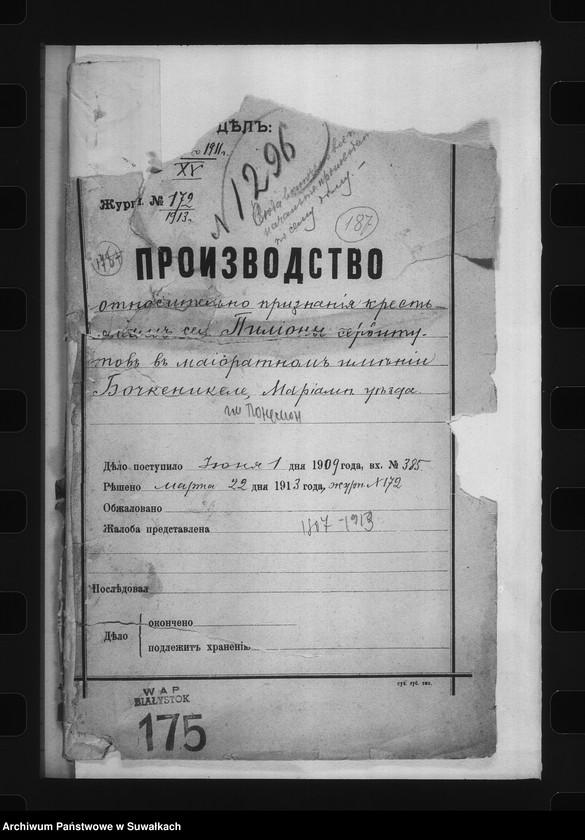 ДѢЛЪ:
1911 г.
XV
Журн. № 172
1913 г.
N 1296
Сюда
по сему
187
1787
ПРОИЗВОДСТВО
относительно признанiя кресть-
сел. Пилюны сервиту-
товъ въ маiоратномъ имѣнiи
Бочкеникеле, Марiамп. уѣзда.
Дѣло поступило Iюня 1 дня 1909 года, вх. № 385
Рѣшено Марта 22 дня 1913 года, журн. N 172
Обжаловано
Жалоба представлена
1907-1913
Послѣдовал
Дѣло
окончено
подлежитъ храненiю
Суб. губ. тип.
WAP
BIAŁYSTOK
175
Archiwum Państwowe w Suwałkach